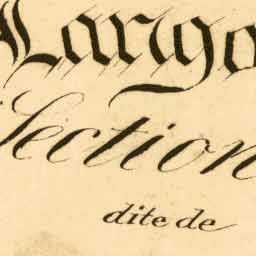 Largo
Section
dite de